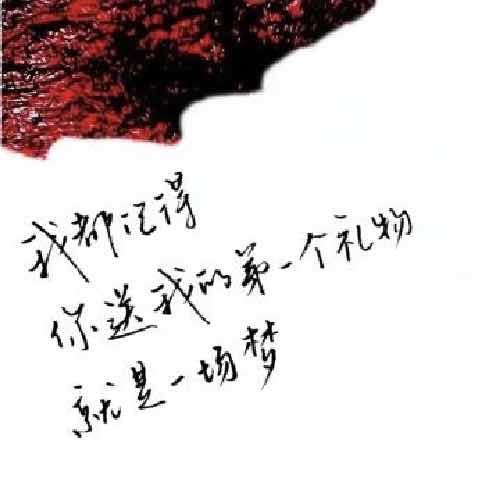 我都记得
你送我的第一个礼物
就是一场梦